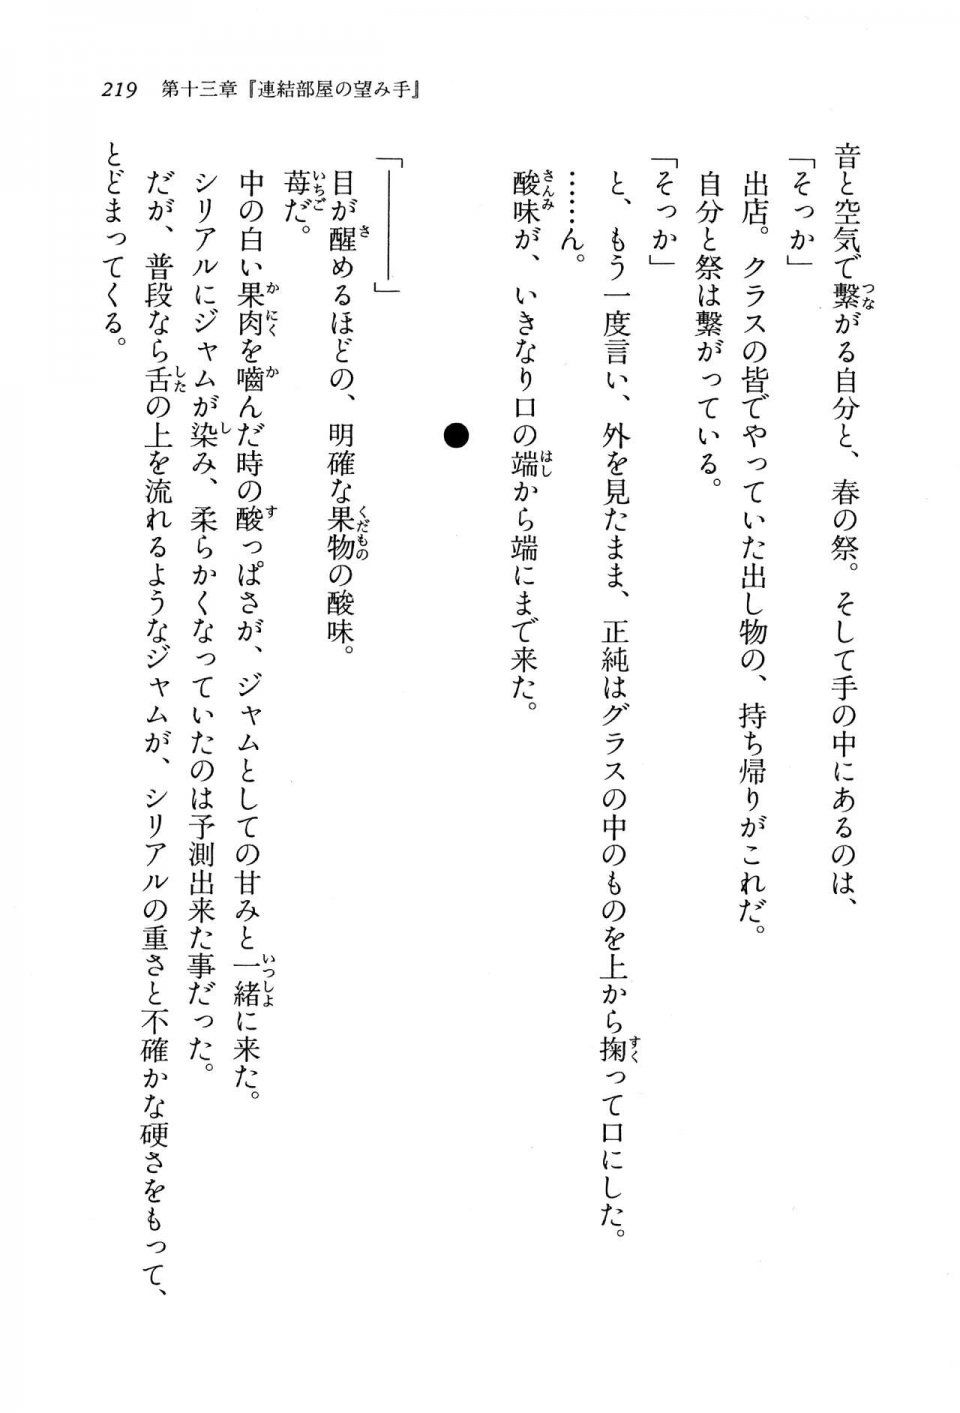 219　第十三章『連結部屋の望み手』
音と空気で繋がる自分と、春の祭。そして手の中にあるのは、
「そっか」
出店。クラスの皆でやっていた出し物の、持ち帰りがこれだ。
自分と祭は繋がっている。
「そっか」
と、もう一度言い、外を見たまま、正純はグラスの中のものを上から掬って口にした。
……ん。
酸味が、いきなり口の端から端にまで来た。
●
「――――」
目が醒めるほどの、明確な果物の酸味。
苺だ。
中の白い果肉を嚙んだ時の酸っぱさが、ジャムとしての甘みと一緒に来た。
シリアルにジャムが染み、柔らかくなっていたのは予測出来た事だった。
だが、普段なら舌の上を流れるようなジャムが、シリアルの重さと不確かな硬さをもって、
とどまってくる。